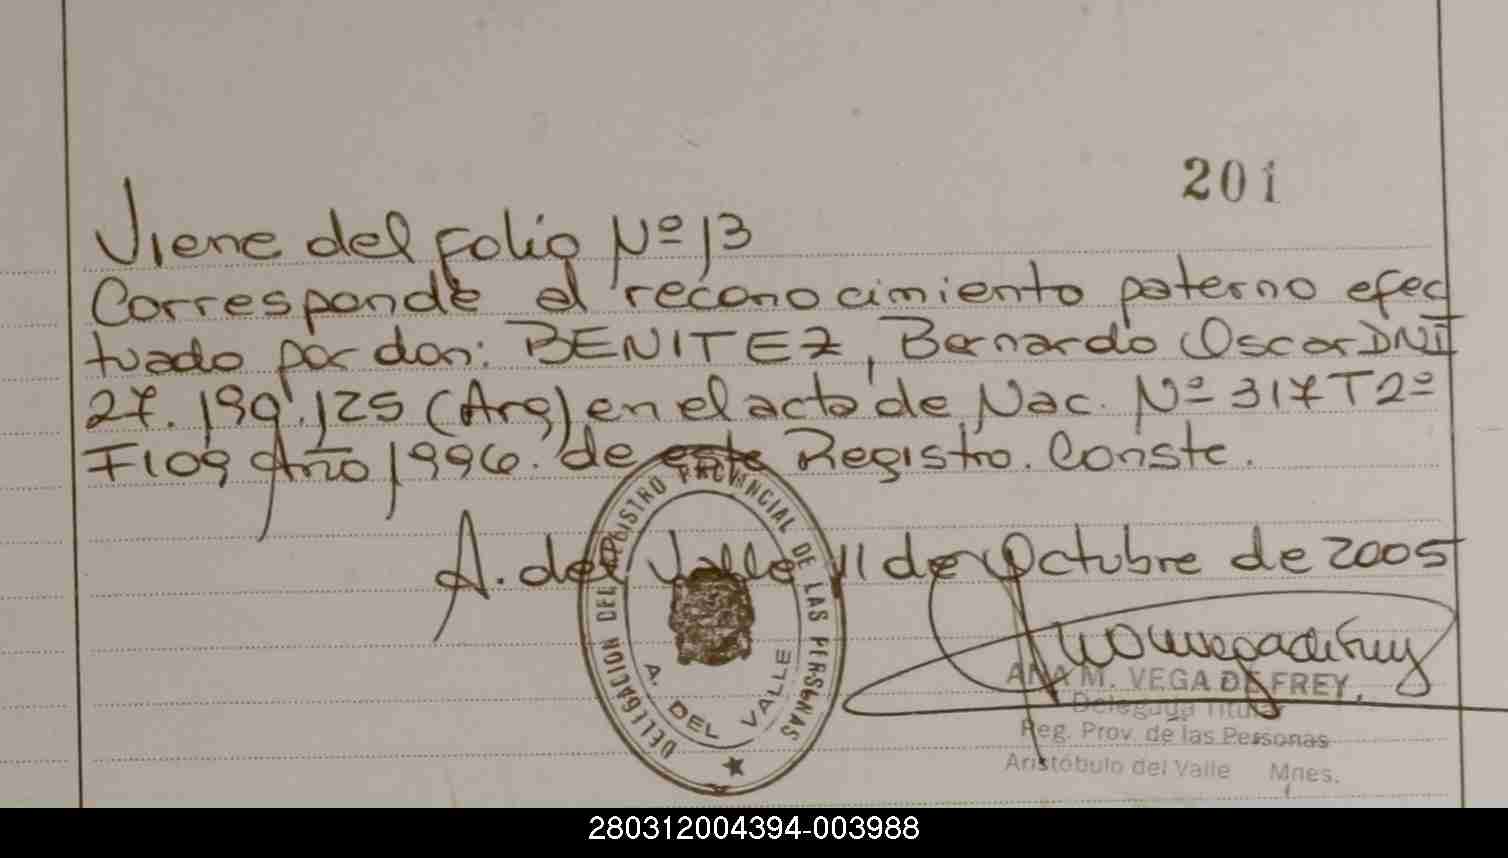 201
Viene del folio Nº 13
Corresponde al reconocimiento paterno efec
tuado por don: BENITEZ, Bernardo Oscar DNI
27.199.125 (Arg) en el acta de Nac. Nº 317 T2º
F109 Año 1996. de este Registro. Conste.
A. del Valle 11 de Octubre de 2005
DELEGACION DEL REGISTRO PROVINCIAL DE LAS PERSONAS
A. DEL VALLE
ANA M. VEGA DE FREY
Delegada Titular
Reg. Prov. de las Personas
Aristóbulo del Valle Mnes.
280312004394-003988